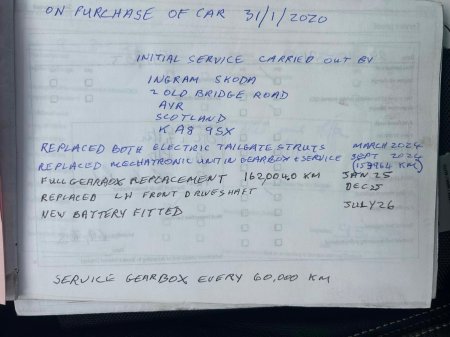 ON PURCHASE OF CAR 31/1/2020
INITIAL SERVICE CARRIED OUT BY
INGRAM SKODA
2 OLD BRIDGE ROAD
AYR
SCOTLAND
KA8 9SX
REPLACED BOTH ELECTRIC TAILGATE STRUTS MARCH 2024
REPLACED MECHATRONIC UNIT IN GEARBOX + SERVICE SEPT 2024
(153964 KM)
FULL GEARBOX REPLACEMENT 162,0040 KM JAN 25
REPLACED LH FRONT DRIVESHAFT DEC 25
NEW BATTERY FITTED JULY 26
SERVICE GEARBOX EVERY 60,000 KM